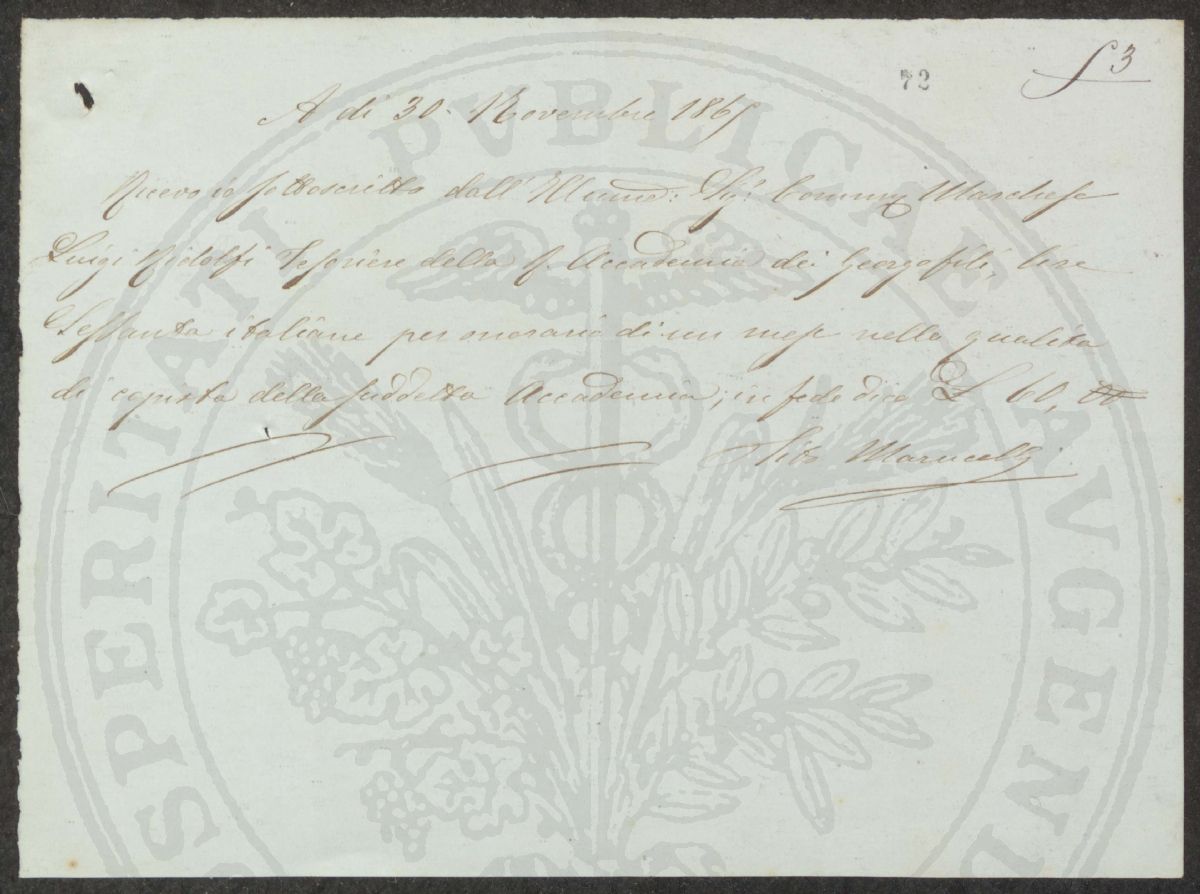 72
§ 3
A dì 30. Novembre 1865
Ricevo io sottoscritto dall' Illmo: Sig.r Comm.e Marchese
Luigi Ridolfi Tesoriere della R. Accademia dei Georgofili, lire
Sessanta italiane per onorario di un mese nella qualità
di copista della suddetta Accademia; in fede dico £ 60, 00
Tito Marucelli
PROSPERITATI PVBLICAE AVGENDAE